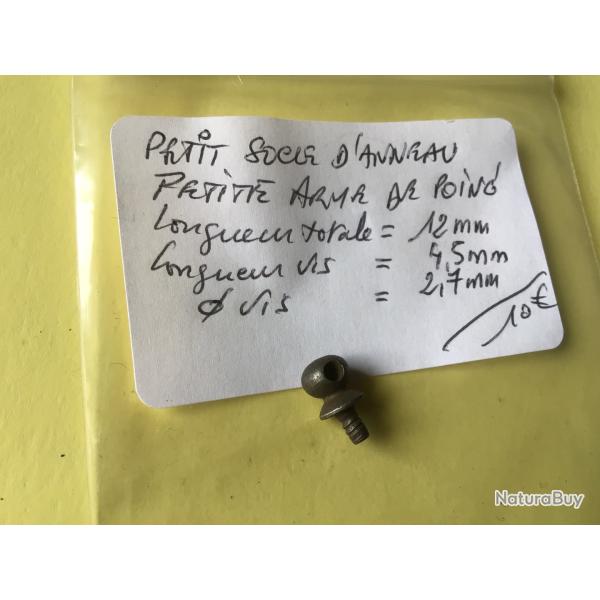 PETIT SOCLE D'ANNEAU
PETITE ARME DE POING
Longueur totale = 12mm
Longueur vis = 4,5mm
φ vis = 2,7mm
10€
NaturaBuy